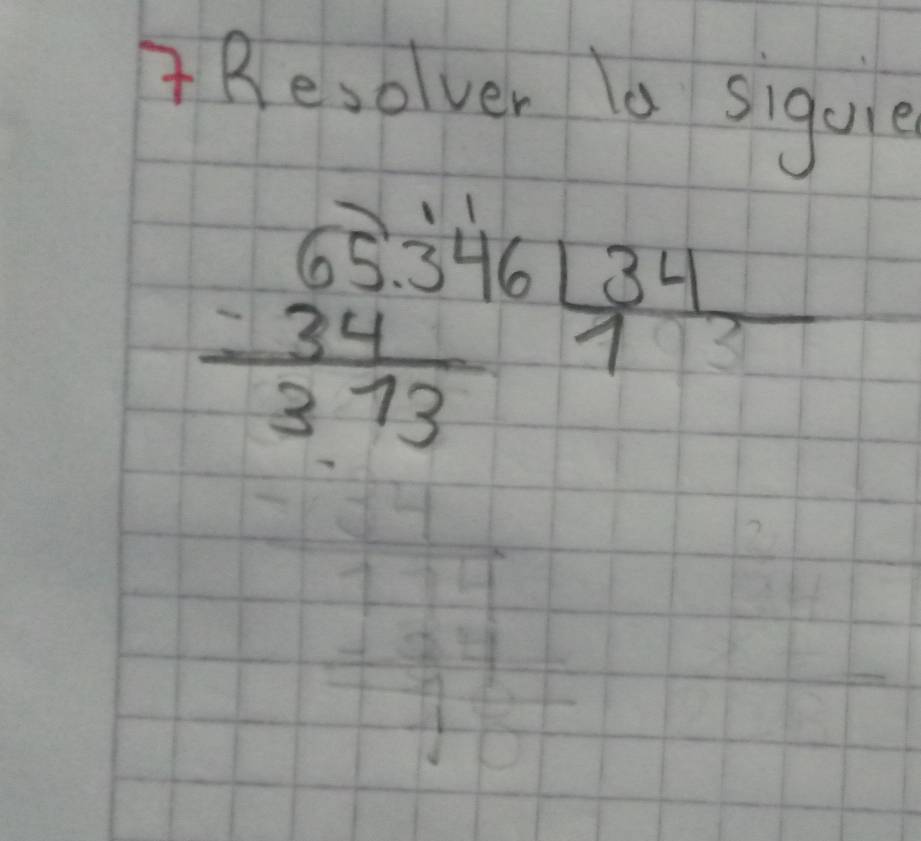 7 Resolver la siguie
65.346 34
- 34 1
3 13